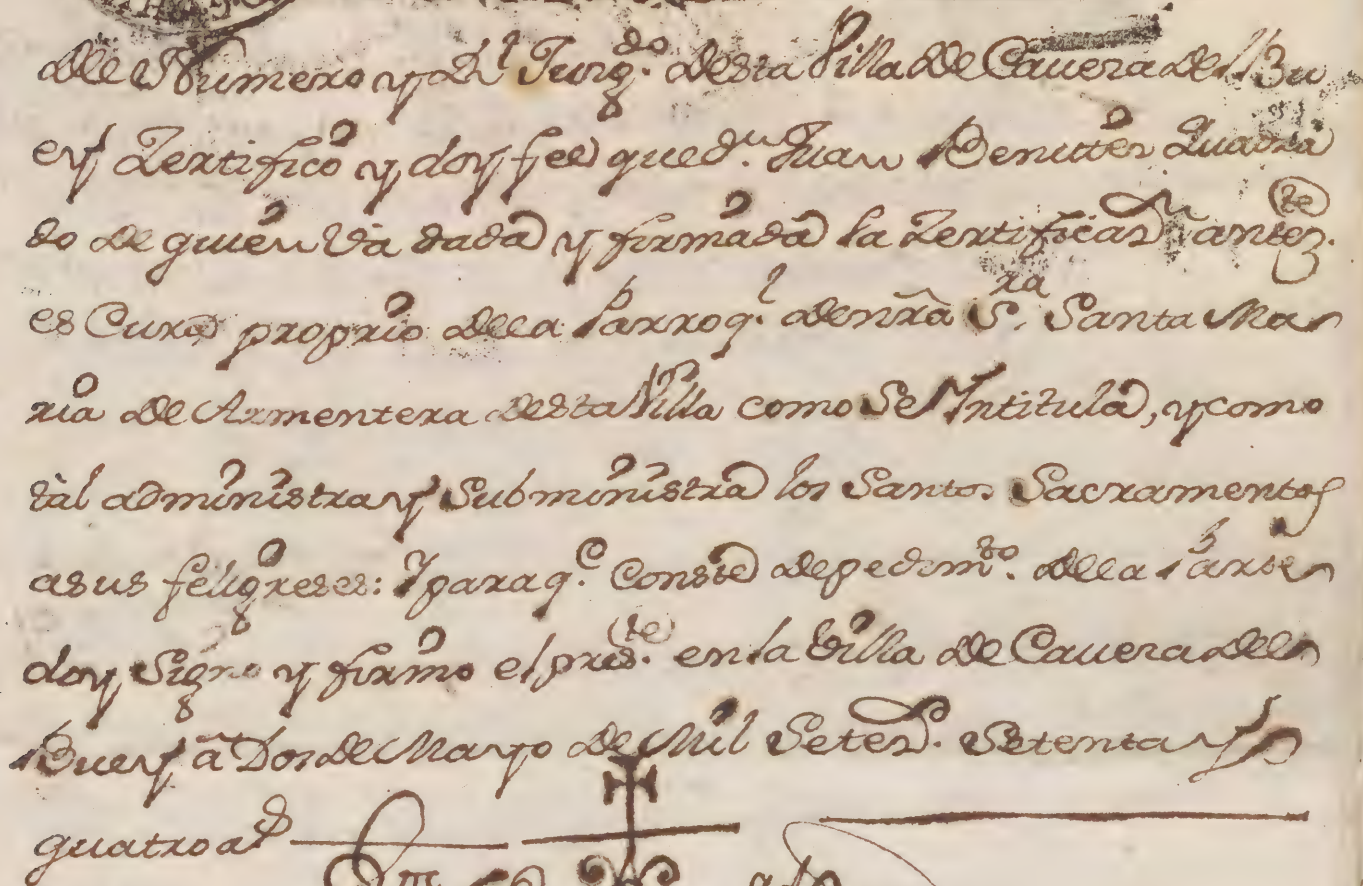 del Numero y del Juzg.do desta Villa de Cavera del Bu
ey Zertifico y doy fee que d.n Juan Benitez Quadra
do de quien va dada y firmada la Zertificaz.n antez.te
es Cura proprio de la Parroq.l de nr̃a S.ra Santa Ma
ria de Armentera desta Villa como se Yntitula, y como
tal administra y Subministra los Santos Sacramentos
a sus feligreses: Y para q.e Conste de pedim.to de la Parte
doy Signo y firmo el pres.te en la Villa de Cavera del
Buey à Dos de Mayo de Mil Setez.s Setenta y
quatro a.s